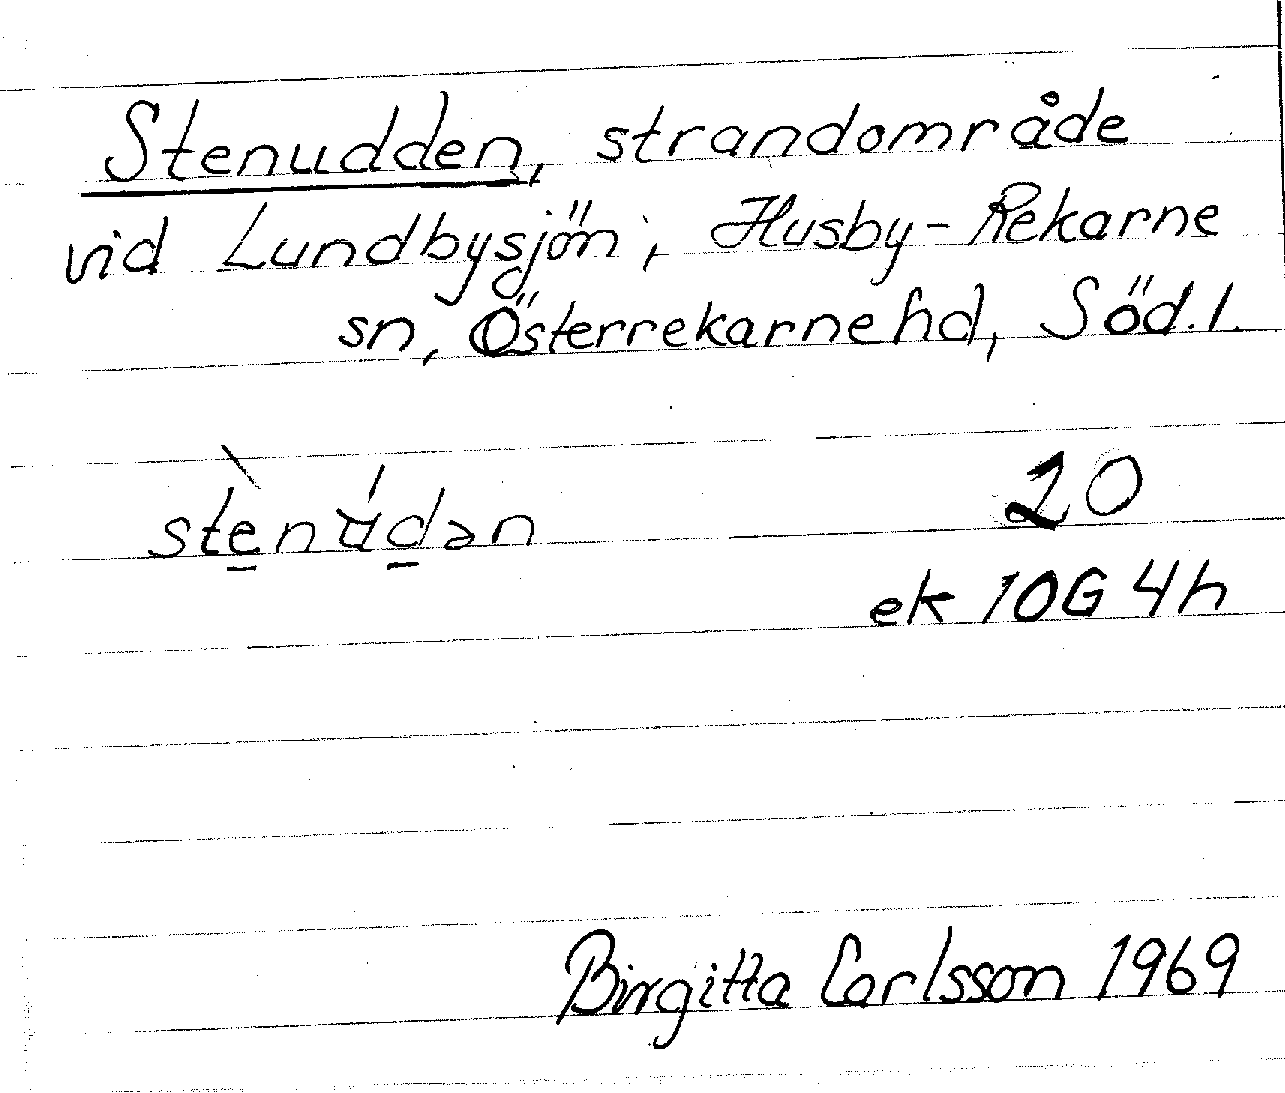 Stenudden, strandområde
vid Lundbysjön, Husby-Rekarne
sn, Österrekarne hd, Söd. l.
20
ek 10G 4h
Birgitta Carlsson 1969